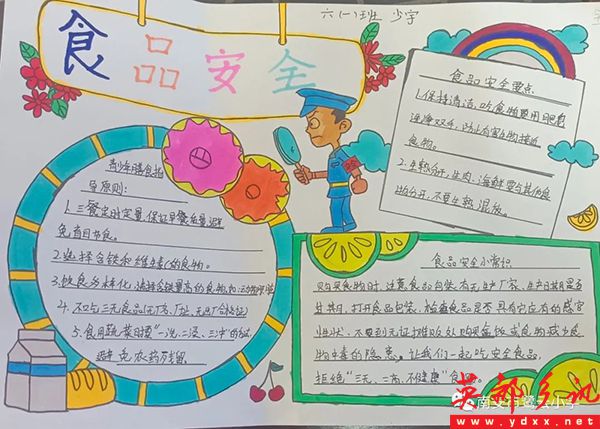 六(一)班 少宇
食品安全
食品安全要点
1.保持清洁,吃食物要用肥皂
洗净双手,防止有害生物接近
食物。
2.生熟分开,生肉、海鲜要与其他食
物分开,不要生熟混放。
青少年膳食指
导原则:
1.三餐定时定量,保证早餐质量,避
免盲目节食。
2.选择含铁和维生素C的食物。
3.饮食多样化,选择含铁量高的食物如:动物肝脏
4.不吃三无食品(无厂名、厂址、无出厂合格证)
5.食用蔬菜日摸"一洗,二浸,三冲"的方法
避免农药残留
食品安全小常识
购买食物时,注意食品包装有无生产厂家、生产日期,是否
过期,打开食品包装,检查食品是否具有它应有的感官
性状,不要到无证摊贩处购买盒饭或食物减少食
物中毒的隐患。让我们一起吃安全食品,
拒绝"三无、二高、不健康"食
英都乡讯
www.ydxx.net